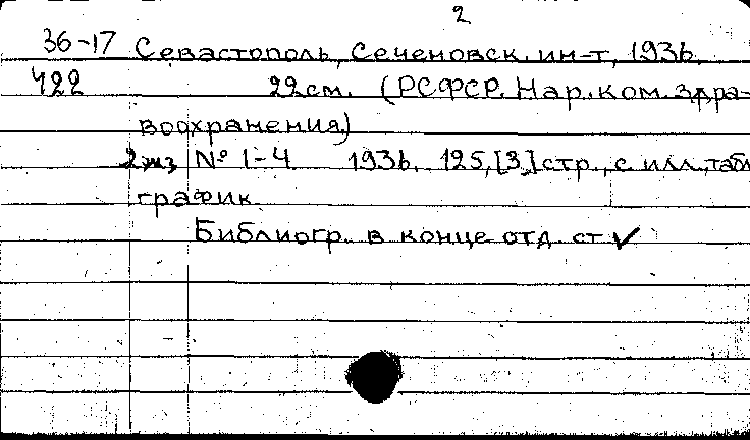 2
36-17 Севастополь, Сеченовск. ин-т, 1936.
422 22 см. (РСФСР. Нар. ком. здра-
воохранения)
2 экз № 1-4 1936. 125, [3] стр., с илл., табл
график.
Библиогр. в конце отд. ст